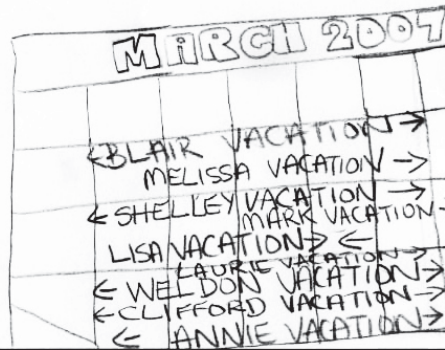 MARCH 2007
BLAIR VACATION
MELISSA VACATION
SHELLEY VACATION
MARK VACATION
LISA VACATION
LAURIE VACATION
WELDON VACATION
CLIFFORD VACATION
ANNIE VACATION